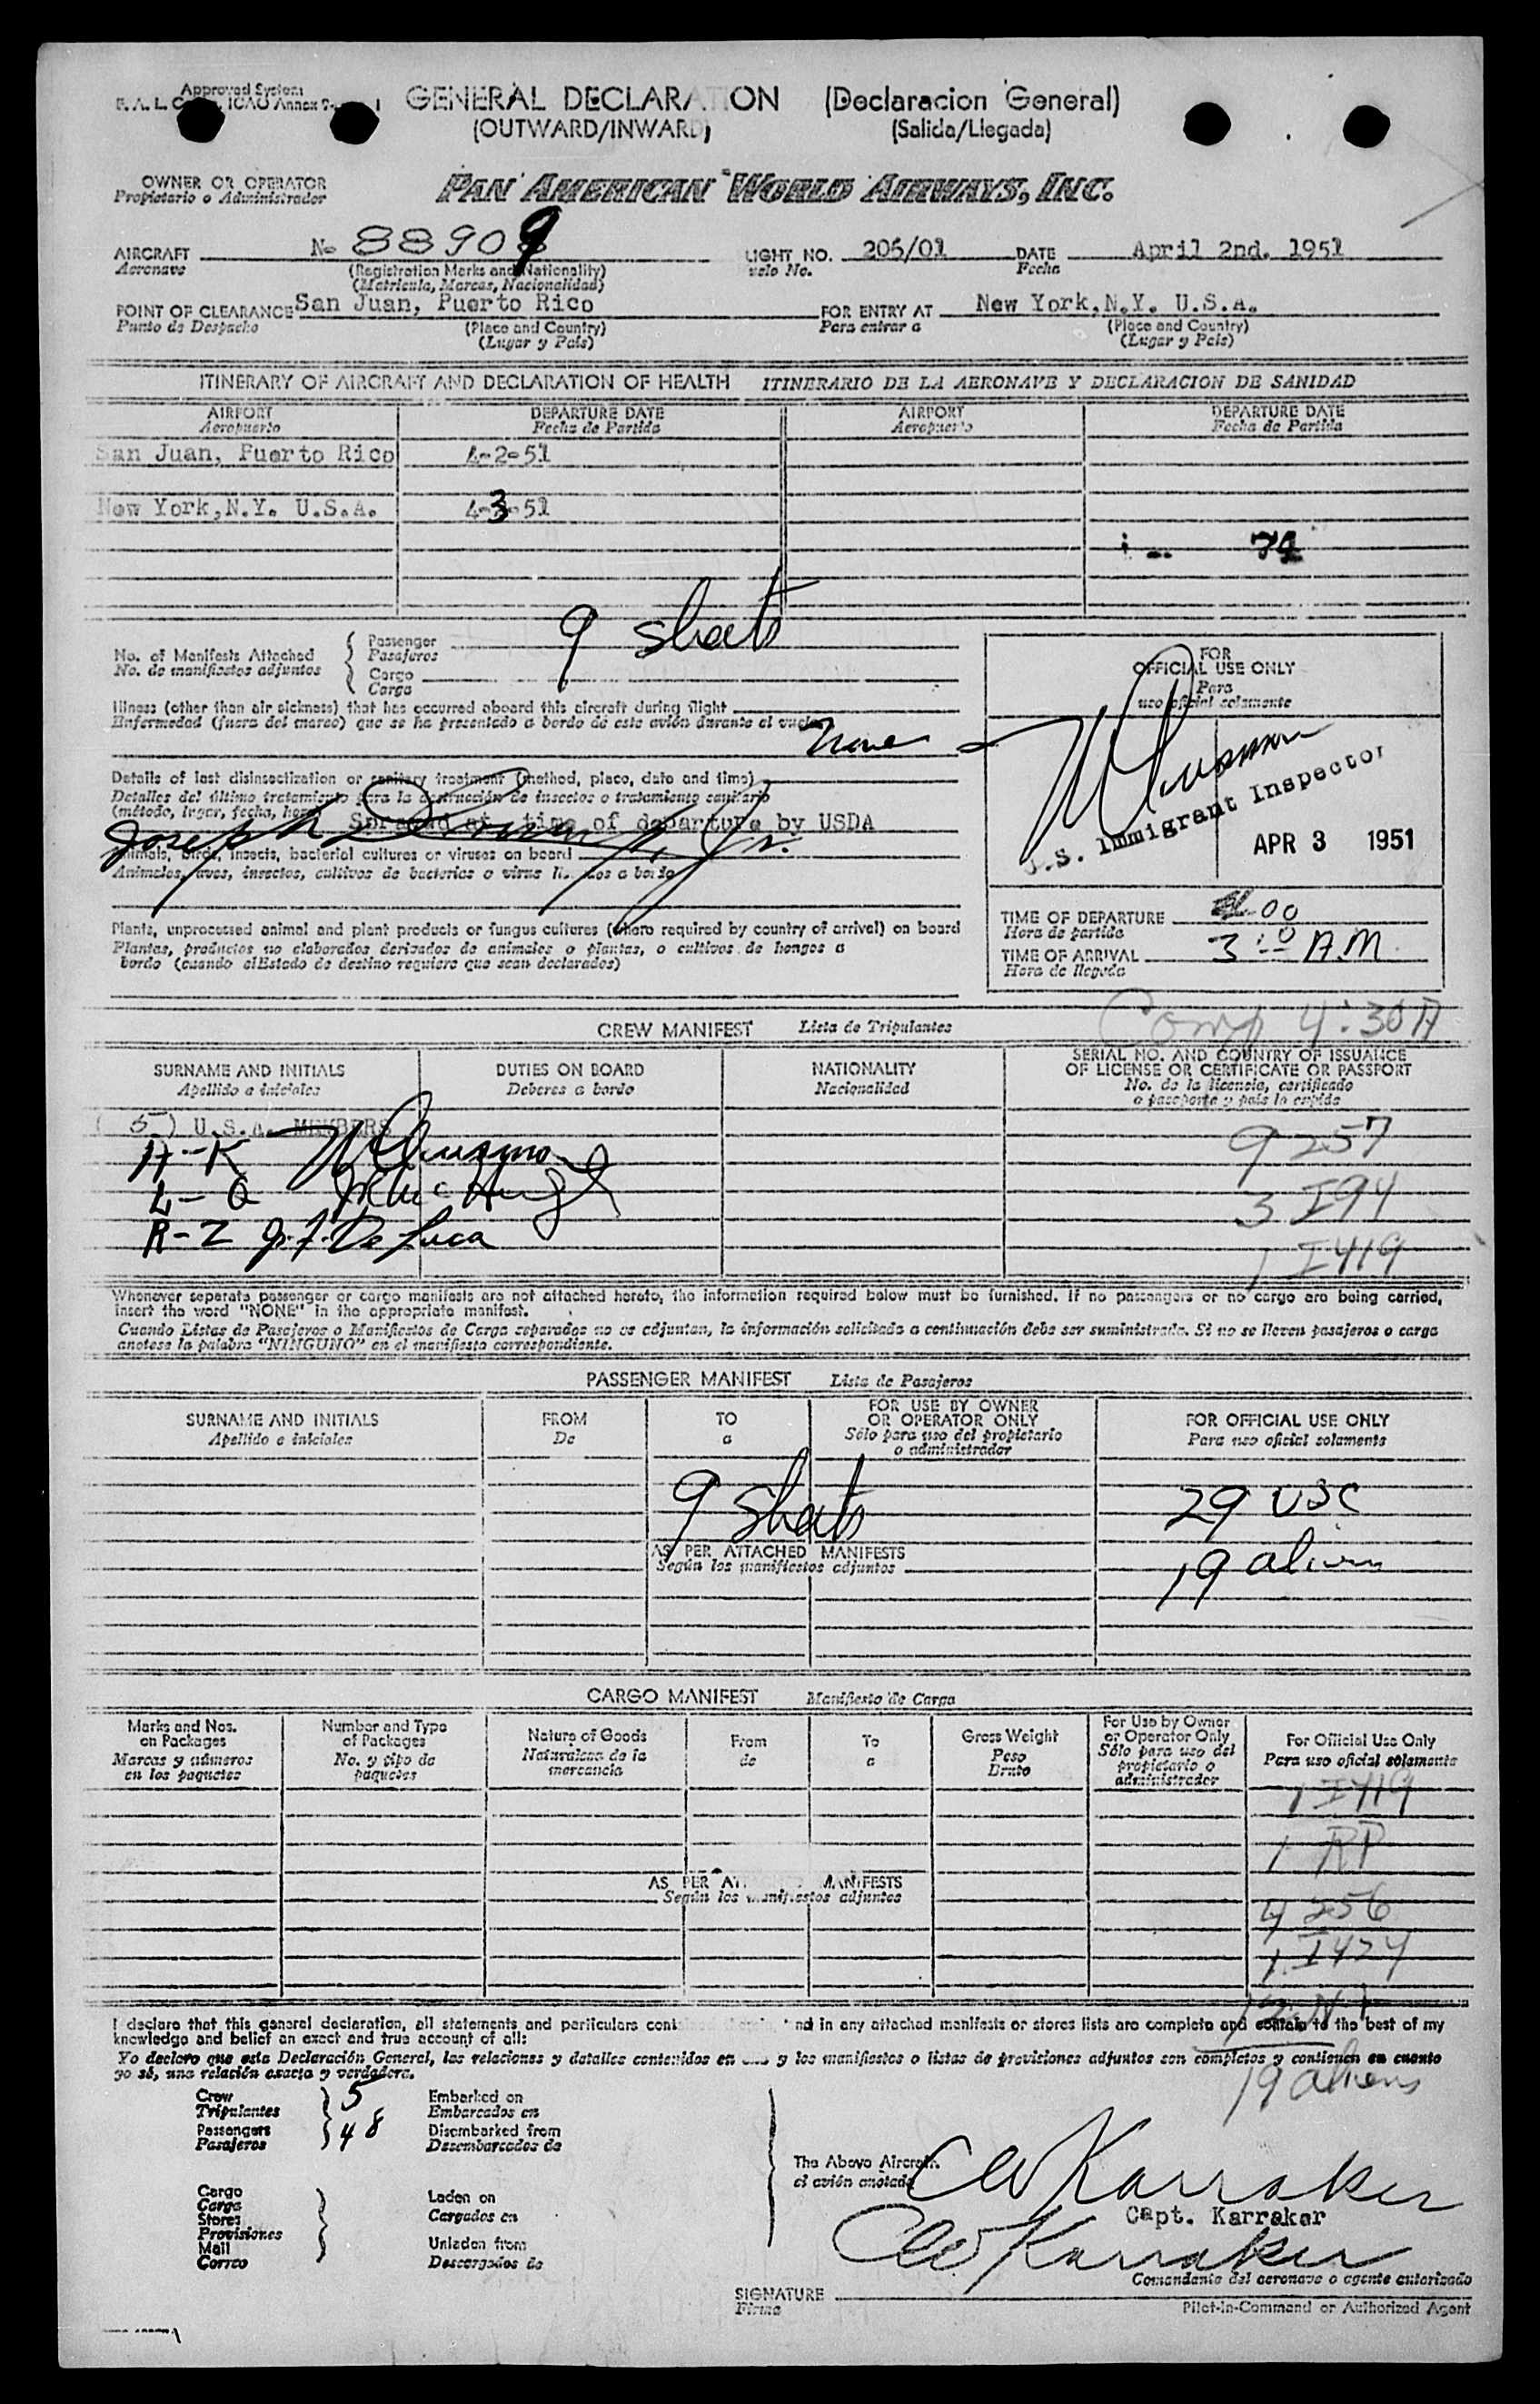 Approved System
GENERAL DECLARATION (Declaracion General)
(OUTWARD/INWARD) (Salida/Llegada)
OWNER OR OPERATOR
Propietario o Administrador
PAN AMERICAN WORLD AIRWAYS, INC.
AIRCRAFT No 88909 LIGHT NO. 206/01 DATE April 2nd. 1951
Aeronave (Registration Marks and Nationality) velo No. Fecha
(Matricula, Marcas, Nacionalidad)
POINT OF CLEARANCE San Juan, Puerto Rico FOR ENTRY AT New York, N.Y. U.S.A.
Punto de Despacho (Place and Country) Para entrar a (Place and Country)
(Lugar y Pais) (Lugar y Pais)
ITINERARY OF AIRCRAFT AND DECLARATION OF HEALTH ITINERARIO DE LA AERONAVE Y DECLARACION DE SANIDAD
AIRPORT DEPARTURE DATE AIRPORT DEPARTURE DATE
Aeropuerto Fecha de Partida Aeropuerto Fecha de Partida
San Juan, Puerto Rico 4-2-51
New York, N.Y. U.S.A. 4-3-51
9 sheets
No. of Manifests Attached
No. de manifiestos adjuntos
Passenger
Pasajeros
Cargo
Carga
Illness (other than air sickness) that has occurred aboard this aircraft during flight
Enfermedad (fuera del mareo) que se ha presentado a bordo de este avión durante el vuelo
None
Details of last disinsectization or sanitary treatment (method, place, date and time)
Detalles del último tratamiento para la destrucción de insectos o tratamiento sanitario
(método, lugar, fecha, hora) Sprayed at time of departure by USDA
Joseph Jr.
Animals, birds, insects, bacterial cultures or viruses on board
Animales, aves, insectos, cultivos de bacterias o virus a bordo
Plants, unprocessed animal and plant products or fungus cultures (where required by country of arrival) on board
Plantas, productos no elaborados derivados de animales o plantas, o cultivos de hongos a
bordo (cuando el Estado de destino requiere que sean declarados)
FOR
OFFICIAL USE ONLY
Para
uso oficial solamente
U.S. Immigrant Inspector
APR 3 1951
TIME OF DEPARTURE
Hora de partida
TIME OF ARRIVAL 3:00 A.M.
Hora de llegada
Comp 4:30 A
CREW MANIFEST Lista de Tripulantes
SURNAME AND INITIALS DUTIES ON BOARD NATIONALITY SERIAL NO. AND COUNTRY OF ISSUANCE
OF LICENSE OR CERTIFICATE OR PASSPORT
Apellido e iniciales Deberes a bordo Nacionalidad No. de la licencia, certificado
o pasaporte y pais lo expide
(5) U.S.A. MEMBERS
A-K
L-Q
R-Z J.F. De Luca
9 257
3 I94
1 I419
Whenever separate passenger or cargo manifests are not attached hereto, the information required below must be furnished. If no passengers or no cargo are being carried,
insert the word "NONE" in the appropriate manifest.
Cuando Listas de Pasajeros o Manifiestos de Carga separados no se adjuntan, la información solicitada a continuación debe ser suministrada. Si no se lleven pasajeros o carga
anotese la palabra "NINGUNO" en el manifiesto correspondiente.
PASSENGER MANIFEST Lista de Pasajeros
SURNAME AND INITIALS FROM TO FOR USE BY OWNER
OR OPERATOR ONLY FOR OFFICIAL USE ONLY
Apellido e iniciales De a Sólo para uso del propietario
o administrador Para uso oficial solamente
9 sheets
29 USC
19 aliens
AS PER ATTACHED MANIFESTS
Según los manifiestos adjuntos
CARGO MANIFEST Manifiesto de Carga
Marks and Nos.
on Packages
Marcas y números
en los paquetes
Number and Type
of Packages
No. y tipo de
paquetes
Nature of Goods
Naturaleza de la
mercancia
From
de
To
a
Gross Weight
Peso
Bruto
For Use by Owner
or Operator Only
Sólo para uso del
propietario o
administrador
For Official Use Only
Para uso oficial solamente
1 I419
1 RP
4 256
1 I424
AS PER MANIFESTS
Según los manifiestos adjuntos
I declare that this general declaration, all statements and particulars and in any attached manifests or stores lists are complete and contain to the best of my
knowledge and belief an exact and true account of all:
Yo declaro que esta Declaración General, las relaciones y detalles contenidos en y los manifiestos o listas de provisiones adjuntos son completos y contienen en cuanto
yo sé, una relación exacta y verdadera.
19 aliens
Crew 5 Embarked on
Tripulantes Embarcados en
Passengers 48 Disembarked from
Pasajeros Desembarcados de
The Above Aircraft
el avión anotado
CW Karraker
Capt. Karraker
Cargo Laden on
Carga Cargados en
Stores
Provisiones
Mail Unladen from
Correo Descargados de
CW Karraker
Comandante del aeronave o agente autorizado
SIGNATURE
Firma
Pilot-in-Command or Authorized Agent